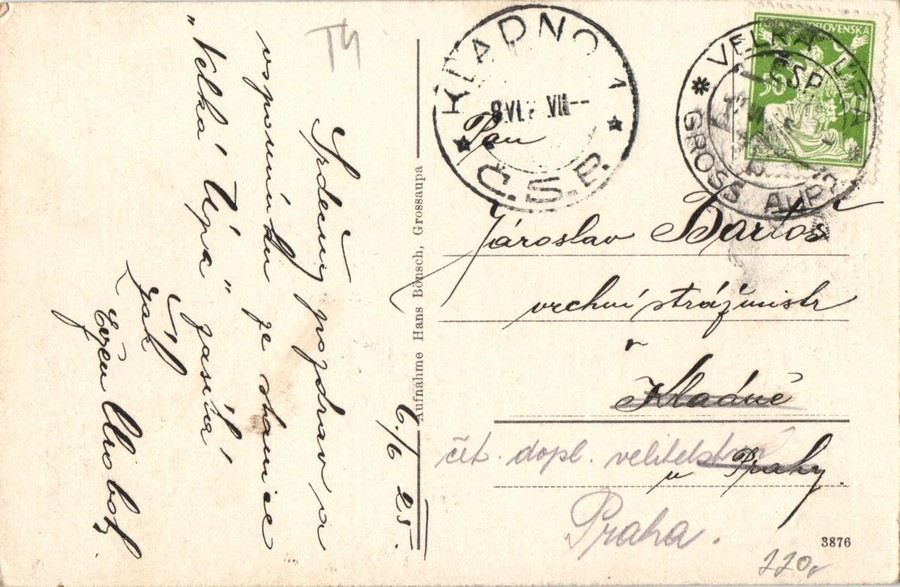 Srdečný pozdrav a
vzpomínku ze stanice
"Velká Úpa" zasílá
Žák
Evžen
6/6 25.
Aufnahme Hans Bönsch, Grossaupa
T4
KLADNO 1
VII
Č.S.P.
VELKÁ ÚPA
ČSP
GROSS AUPA
ČESKOSLOVENSKÁ
50
Pan
Jaroslav Bartoš
vrchní strážmistr
v
Kladně
čet. dopl. velitelství
u Prahy.
Praha.
3876
220,